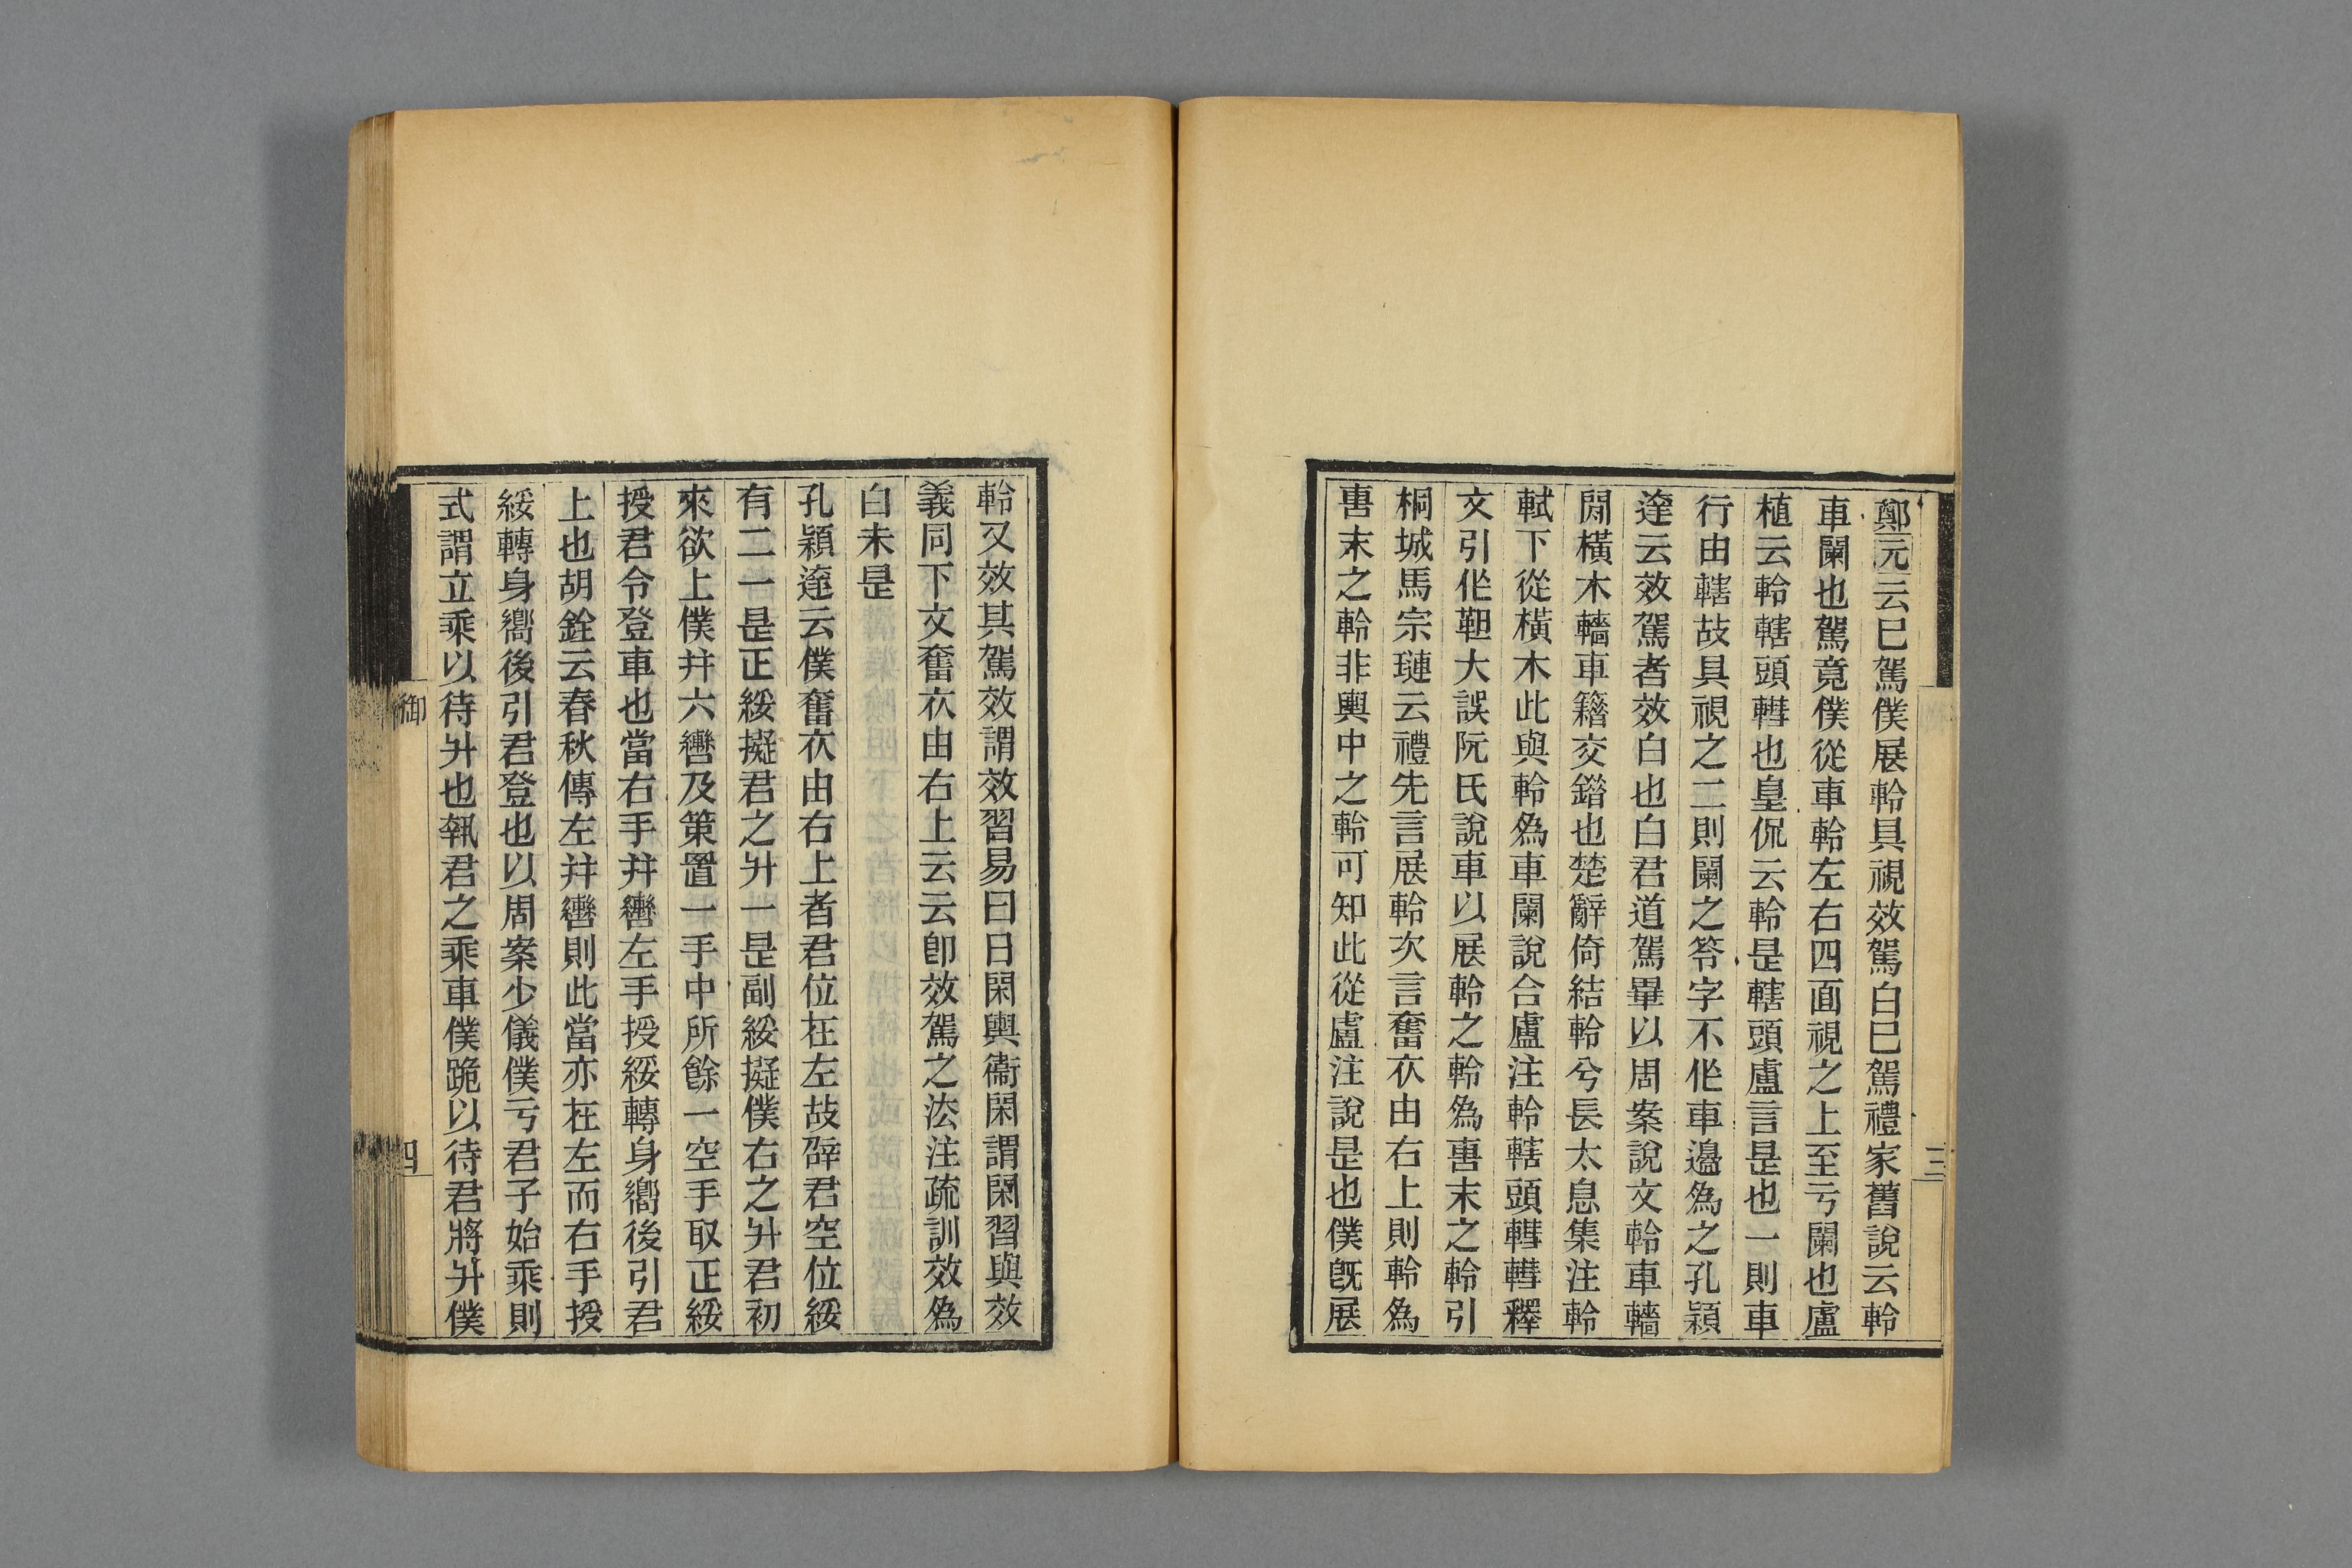 鄭元云已駕僕展軨具視效駕白已駕禮家舊說云軨
車闌也駕竟僕從車軨左右四面視之上至亏闌也盧
植云軨轄頭轊也皇侃云軨是轄頭盧言是也一則車
行由轄故具視之二則闌之笭字不作車邊爲之孔穎
達云效駕者效白也白君道駕畢以周案說文軨車轖
閒橫木轖車籍交錯也楚辭倚結軨兮長太息集注軨
軾下從橫木此與軨爲車闌說合盧注軨轄頭轊轊釋
文引作䡍大誤阮氏說車以展軨之軨爲軎末之軨引
桐城馬宗璉云禮先言展軨次言奮衣由右上則軨爲
軎末之軨非輿中之軨可知此從盧注說是也僕旣展
三
軨又效其駕效謂效習易曰日閑輿衞閑謂閑習與效
義同下文奮衣由右上云云卽效駕之法注疏訓效爲
白未是
孔穎達云僕奮衣由右上者君位在左故辟君空位綏
有二一是正綏擬君之升一是副綏擬僕右之升君初
來欲上僕并六轡及策置一手中所餘一空手取正綏
授君令登車也當右手并轡左手授綏轉身嚮後引君
上也胡銓云春秋傳左并轡則此當亦在左而右手授
綏轉身嚮後引君登也以周案少儀僕亏君子始乘則
式謂立乘以待升也執君之乘車僕跪以待君將升僕
御
四